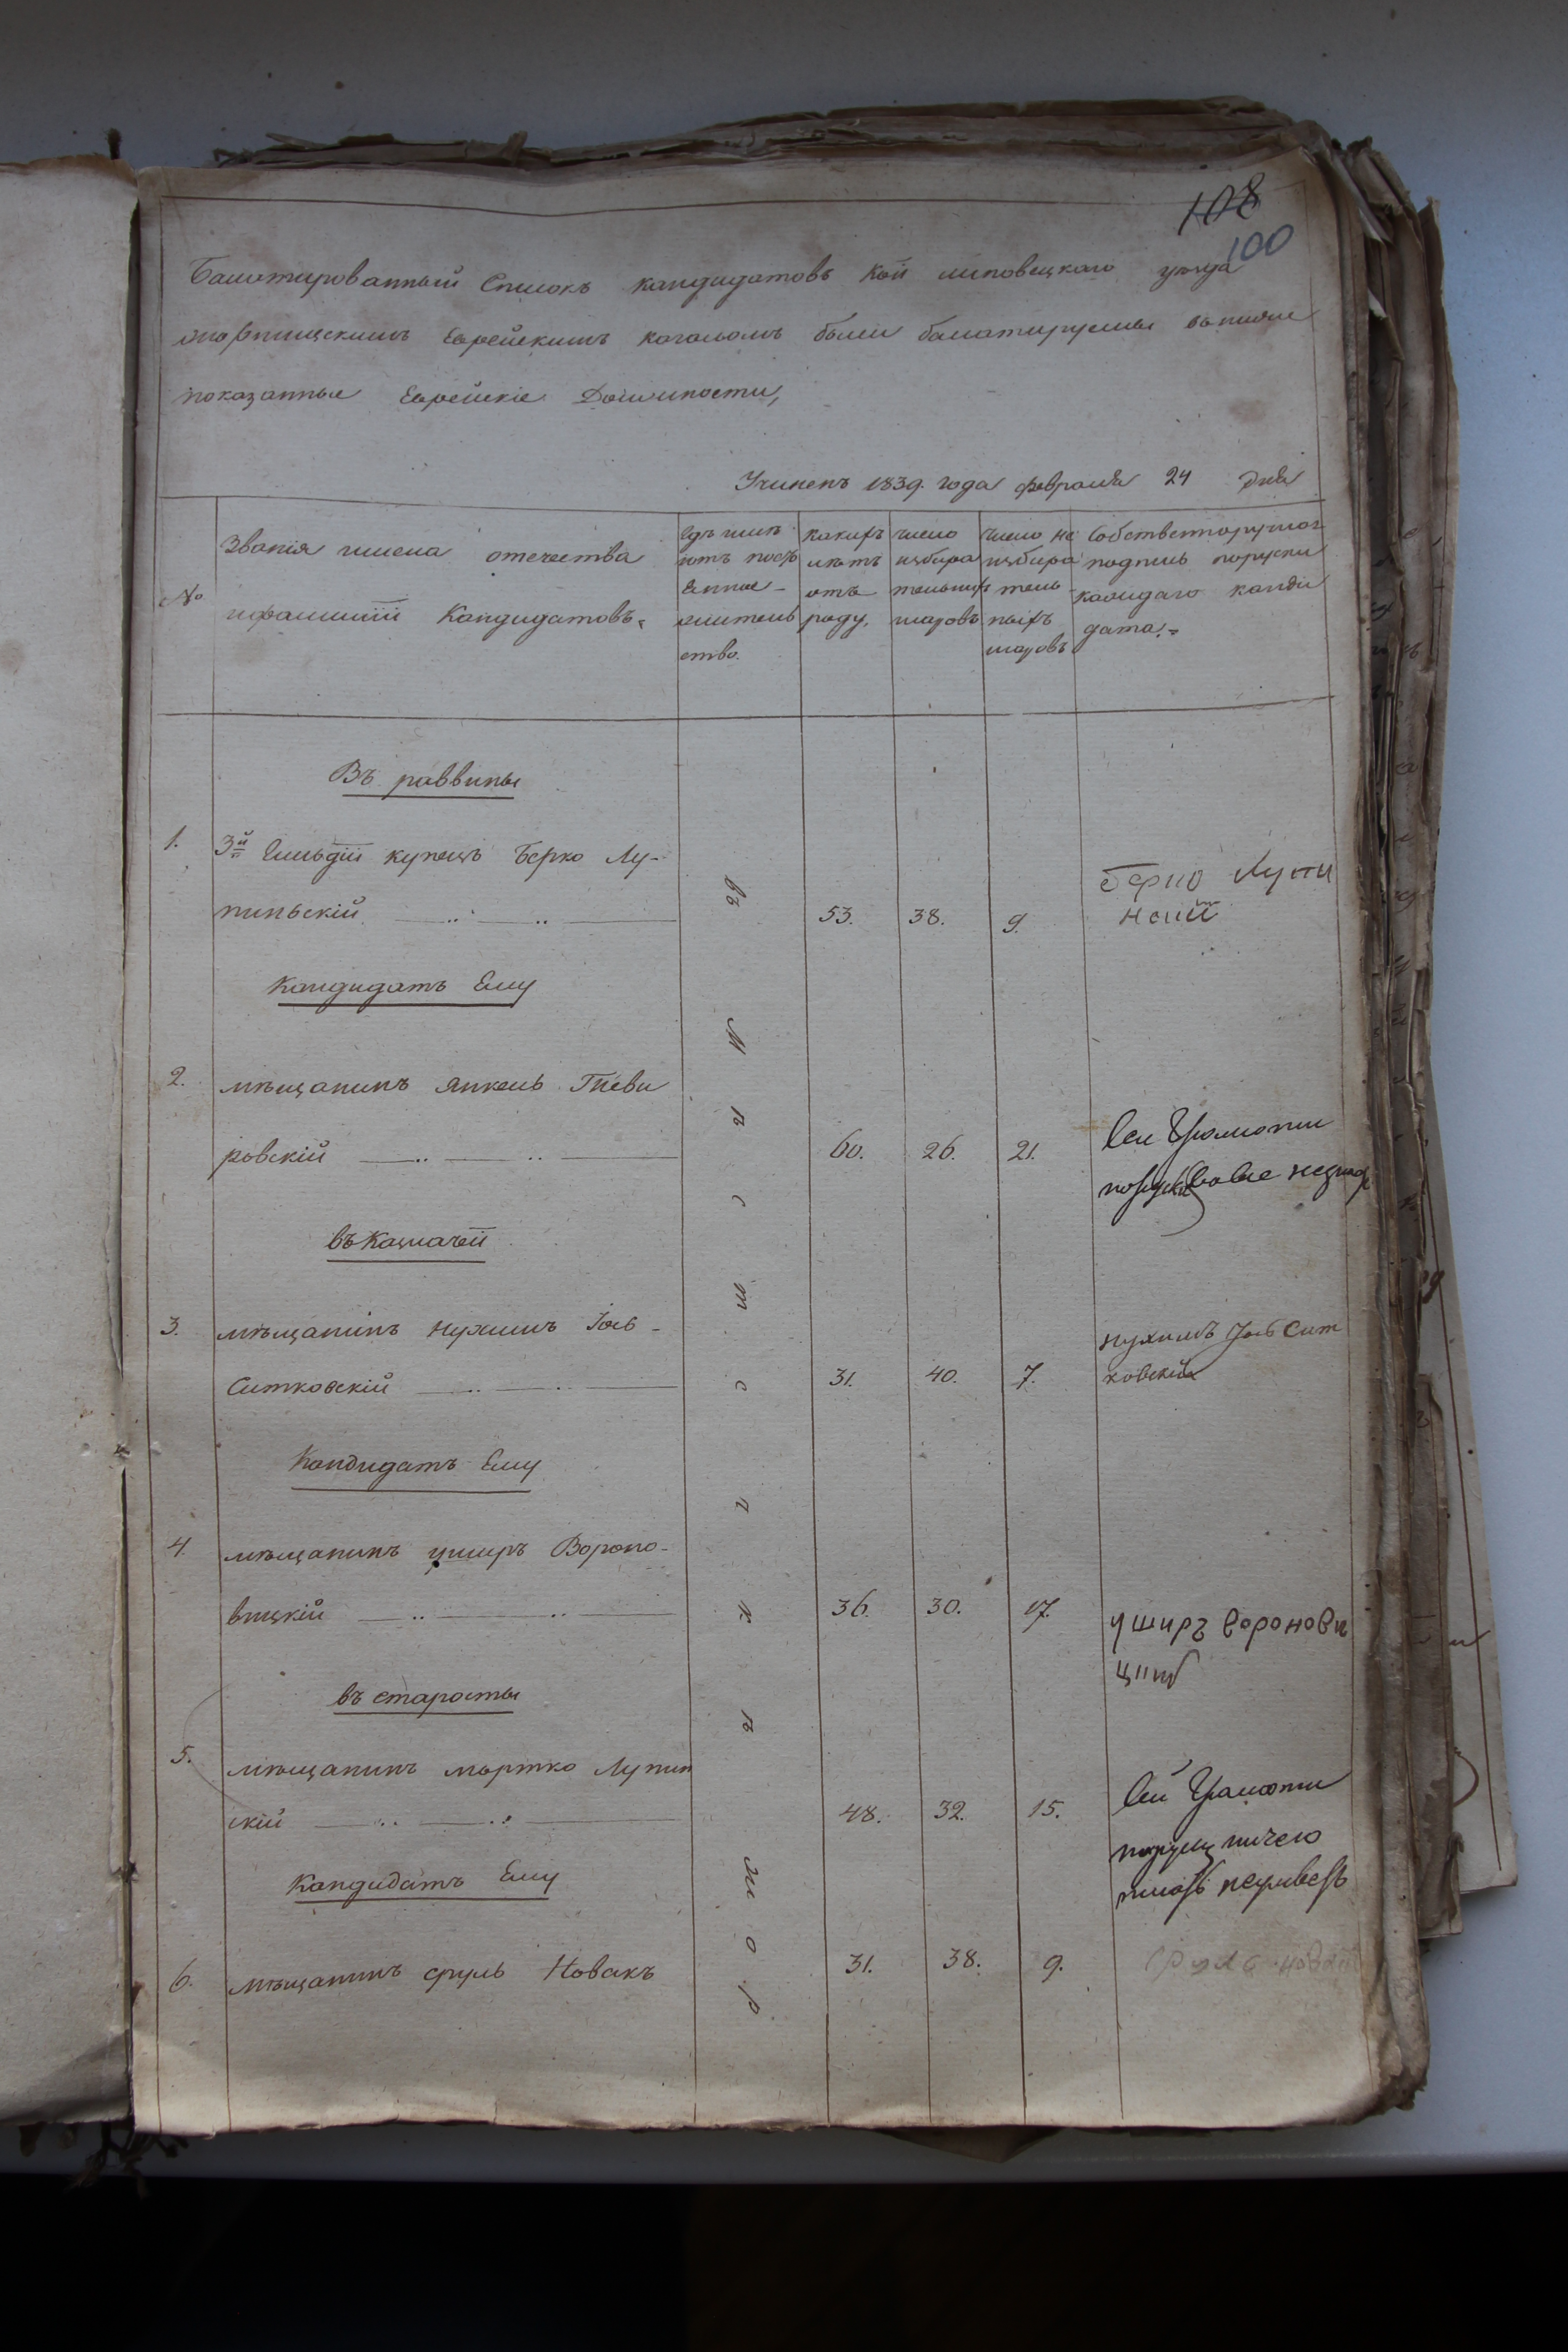 108
100
Балотированный Списокъ кандидатовъ кои липовецкаго уезда
Еврейскимъ кагаломъ были балотируемы вниже
показанные Еврейскіе Должности,
Учиненъ 1839. года февраля 24 дня
№
Званія имена отечества
ифамиліи Кандидатовъ.
Гдѣ имѣ
ютъ посто
янное
житель
ство.
какихъ
лѣтъ
отъ
роду,
число
избира
тельныхъ
шаровъ
число не
избира
тель
ныхъ
шаровъ
Собственноручная
подпись
каждаго канди
дата.
Въ раввины
1. 3й Гильдіи купецъ Берко Лу-
пинскій 53. 38. 9.
Берко Лупи
нский
Кандидатъ Ему
2. мѣщанинъ Янкель
ровскій 60. 26. 21.
Сей Грамоти
въ Казначеи
3. мѣщанинъ Нухимъ Іось
Ситковскій 31. 40. 7.
нухимъ Іось Сит
ковскій
Кандидатъ Ему
4. мѣщанинъ уширъ Вороно-
вицкій 36. 30. 17.
уширъ воронови
въ старосты
5. мѣщанинъ мортко Лупин
скій 48. 32. 15.
Сей Грамоти
Кандидатъ Ему
6. мѣщанинъ сруль Новакъ 31. 38. 9.
сруль новакъ
въ